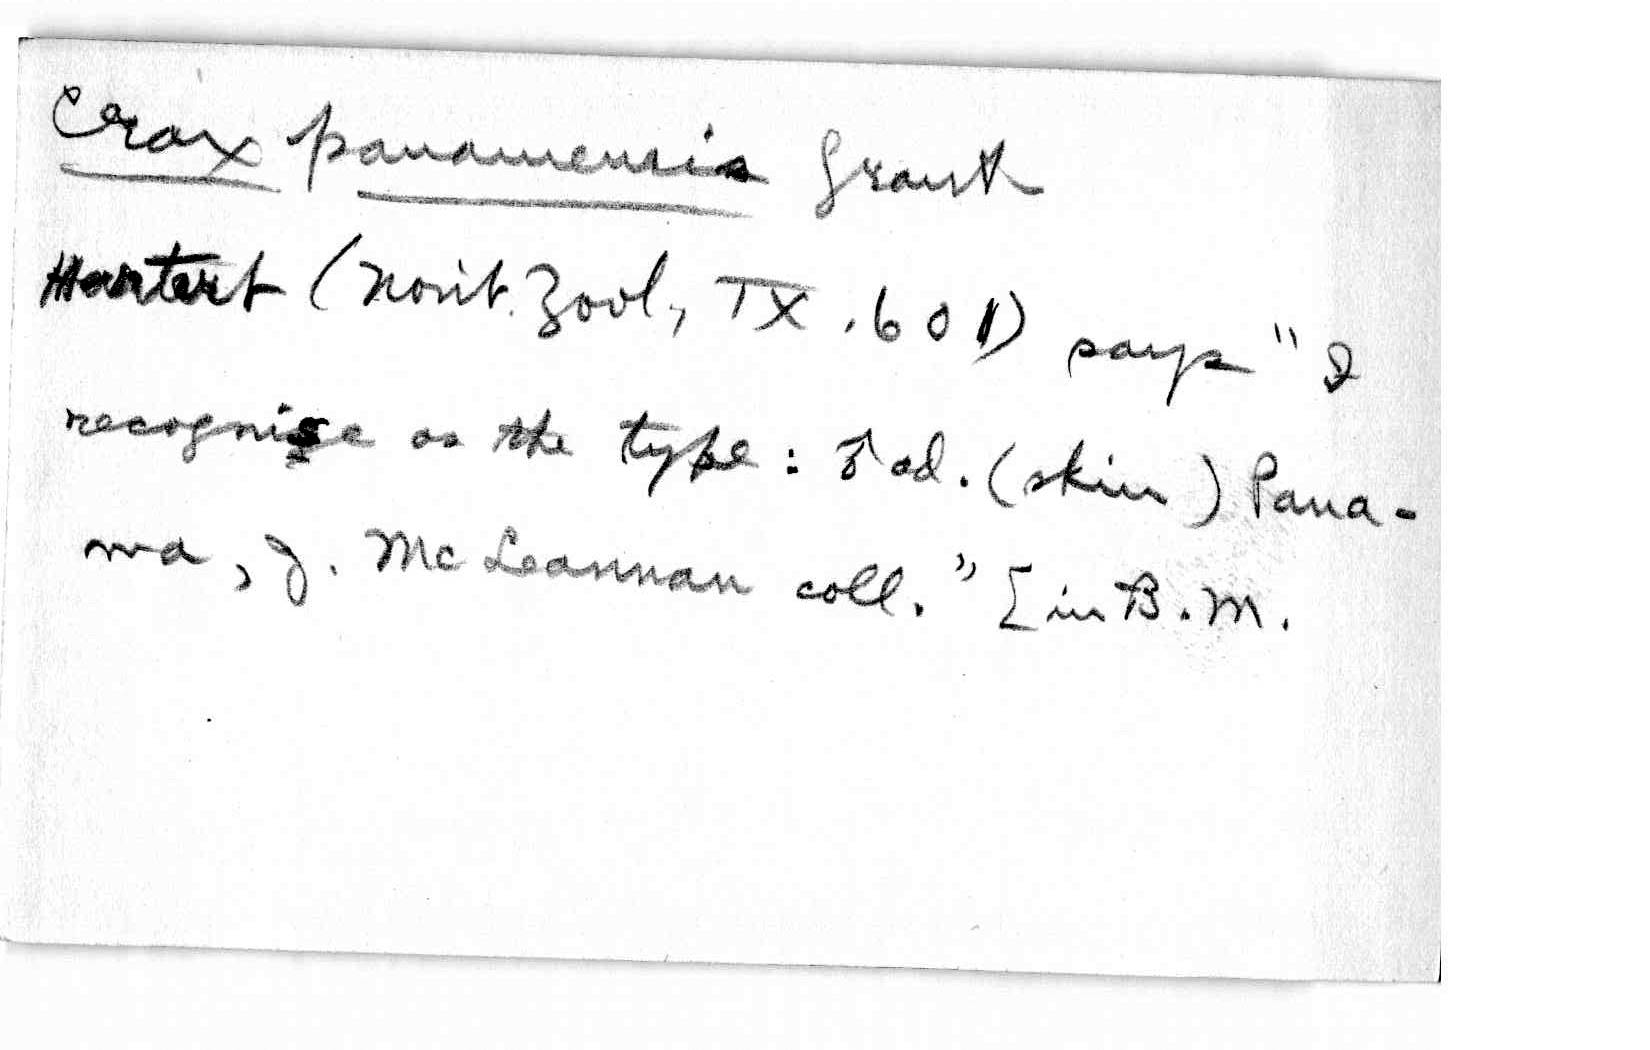 Crax panamensis Grant
Hartert (Novit. Zool, IX. 601) says "I
recognise as the type: ♂ ad. (skin) Pana-
ma, J. McLeannan coll." [in B.M.